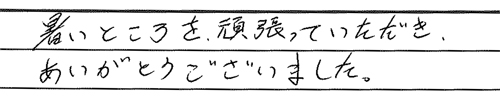 暑いところを、頑張っていただき、
ありがとうございました。